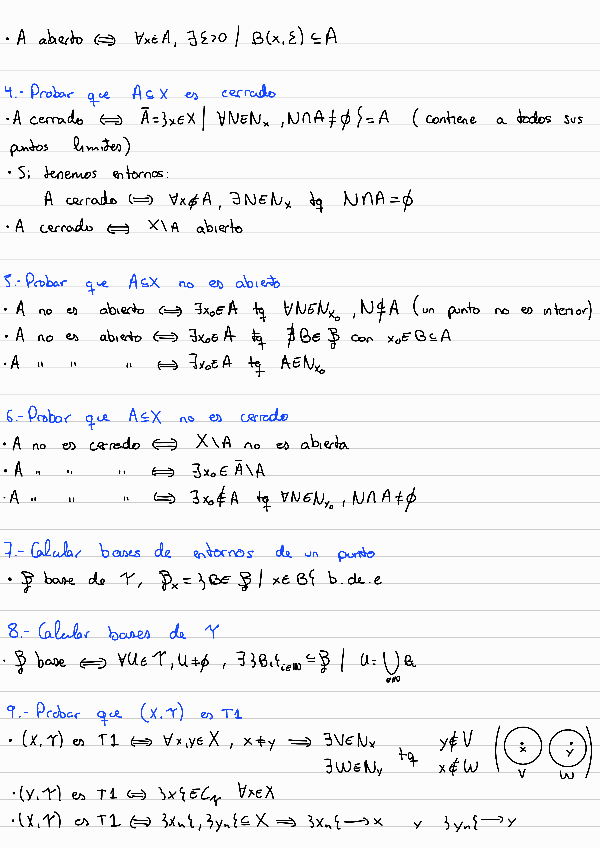 · A abierto ⟺ ∀x∈A, ∃ε>0 / B(x,ε) ⊆ A
4.- Probar que A⊆X es cerrado
· A cerrado ⟺ Ā = {x∈X | ∀N∈Nₓ, N∩A ≠ ∅} = A (contiene a todos sus
puntos límites)
· Si tenemos entornos:
A cerrado ⟺ ∀x∉A, ∃N∈Nₓ tq N∩A = ∅
· A cerrado ⟺ X\A abierto
5.- Probar que A⊆X no es abierto
· A no es abierto ⟺ ∃x₀∈A tq ∀N∈Nₓ₀, N⊈A (un punto no es interior)
· A no es abierto ⟺ ∃x₀∈A tq ∄B∈β con x₀∈B⊆A
· A " " " ⟺ ∃x₀∈A tq A∈Nₓ₀
6.- Probar que A⊆X no es cerrado
· A no es cerrado ⟺ X\A no es abierta
· A " " " ⟺ ∃x₀∈Ā\A
· A " " " ⟺ ∃x₀∉A tq ∀N∈Nₓ₀, N∩A ≠ ∅
7.- Calcular bases de entornos de un punto
· β base de τ, βₓ = {B∈β / x∈B} b.de.e
8.- Calcular bases de τ
· β base ⟺ ∀U∈τ, U≠∅, ∃{Bᵢ} ⊆ β | U = ⋃ Bᵢ
9.- Probar que (X,τ) es T1
· (X,τ) es T1 ⟺ ∀x,y∈X, x≠y ⟹ ∃V∈Nₓ tq y∉V ( x y
∃W∈Nᵧ x∉W V W
· (Y,τ) es T1 ⟺ {x}∈C_τ ∀x∈X
· (X,τ) es T1 ⟺ {xₙ}, {yₙ} ⊆ X ⟹ {xₙ} → x y {yₙ} → y